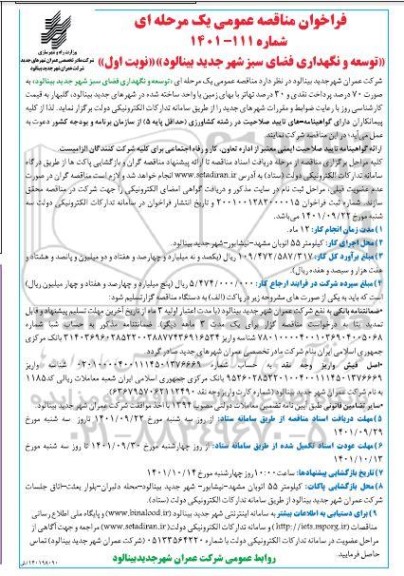 فراخوان مناقصه عمومی یک مرحله ای
شماره ۱۱۱-۱۴۰۱
وزارت راه و شهرسازی
شرکت مادر تخصصی عمران شهرهای جدید
شرکت عمران شهر جدید بینالود
«توسعه و نگهداری فضای سبز شهر جدید بینالود»«نوبت اول»
شرکت عمران شهر جدید بینالود در نظر دارد مناقصه عمومی یک مرحله ای «توسعه و نگهداری فضای سبز شهر جدید بینالود» به
صورت ۷۰ درصد پرداخت نقدی و ۳۰ درصد تهاتر با بهای زمین یا واحد ساخته شده در شهرهای جدید بینالود، گلبهار به قیمت
کارشناسی روز با رعایت ضوابط و مقررات شهرهای جدید را از طریق سامانه تدارکات الکترونیکی دولت برگزار نماید. لذا از کلیه
پیمانکاران دارای گواهینامه-های تایید صلاحیت در رشته کشاورزی (حداقل پایه ۵) از سازمان برنامه و بودجه کشور دعوت به
عمل می‌آید در این مناقصه شرکت نمایند.
ارائه گواهینامه تایید صلاحیت ایمنی معتبر از اداره تعاون، کار و رفاه اجتماعی برای کلیه شرکت کنندگان الزامیست.
کلیه مراحل برگزاری مناقصه از مرحله دریافت اسناد مناقصه تا ارائه پیشنهاد مناقصه گران و بازگشایی پاکت ها از طریق درگاه
سامانه تدارکات الکترونیکی دولت (ستاد) به آدرس www.setadiran.ir انجام خواهد شد و لازم است مناقصه گران در صورت
عدم عضویت قبلی، مراحل ثبت نام در سایت مذکور و دریافت گواهی امضای الکترونیکی را جهت شرکت در مناقصه محقق
سازند. شماره ثبت فراخوان ۲۰۰۱۰۰۱۲۸۳۰۰۰۰۱۵ و تاریخ انتشار فراخوان در سامانه تدارکات الکترونیکی دولت سه
شنبه مورخ ۱۴۰۱/۰۹/۲۲ می‌باشد.
۱) مدت زمان انجام کار: ۱۲ ماه.
۲) محل اجرای کار: کیلومتر ۵۵ اتوبان مشهد-نیشابور-شهر جدید بینالود.
۳) مبلغ برآورد کل کار: ۱۰۹/۴۷۲/۵۸۷/۳۱۷ ریال (یکصد و نه میلیارد و چهارصد و هفتاد و دو میلیون و پانصد و هشتاد و
هفت هزار و سیصد و هفده ریال).
۴) مبلغ سپرده شرکت در فرایند ارجاع کار: ۵/۴۷۴/۰۰۰/۰۰۰ ریال (پنج میلیارد و چهارصد و هفتاد و چهار میلیون ریال)
است که باید به یکی از صورت های مشروحه زیر در پاکت (الف) به دستگاه مناقصه گزار تسلیم شود:
-ضمانتنامه بانکی به نفع شرکت عمران شهر جدید بینالود (با مدت اعتبار اولیه ۳ ماه از تاریخ آخرین مهلت تسلیم پیشنهاد و قابل
تمدید بنا به درخواست مناقصه گزار برای یک مدت ۳ ماهه دیگر)
جمهوری اسلامی ایران بنام شرکت مادر تخصصی عمران شهرهای جدید صادر گردد.
-اصل فیش واریز وجه نقد به حساب شماره
بانک مرکزی جمهوری اسلامی ایران شعبه معاملات ریالی کد ۱۱۸۵
به نام شرکت عمران شهر جدید بینالود
-سایر تضامین قانونی طبق آیین نامه تضمین معاملات دولتی مصوب ۱۳۹۴ با اخذ موافقت شرکت عمران شهر جدید بینالود.
۵) مهلت دریافت اسناد مناقصه از طریق سامانه ستاد: از روز سه شنبه مورخ ۱۴۰۱/۰۹/۲۲ تا روز سه شنبه مورخ
۱۴۰۱/۰۹/۲۹
۶) مهلت عودت اسناد تکمیل شده از طریق سامانه ستاد: از روز چهارشنبه مورخ ۱۴۰۱/۰۹/۳۰ تا سه شنبه مورخ
۱۴۰۱/۱۰/۱۳
۷) تاریخ بازگشایی پیشنهادها: ساعت ۱۰:۰۰ روز چهارشنبه مورخ ۱۴۰۱/۱۰/۱۴
۸) محل بازگشایی پاکات: کیلومتر ۵۵ اتوبان مشهد-نیشابور- شهر جدید بینالود-محله دلبران-بلوار بعثت-اتاق جلسات
شرکت عمران شهر جدید بینالود از طریق سامانه تدارکات الکترونیکی دولت (ستاد).
۹) برای دستیابی به اطلاعات بیشتر به سامانه اینترنتی شهر جدید بینالود (www.binalood.ir) و پایگاه ملی اطلاع رسانی
مناقصات (http://iets.mporg.ir) و سامانه تدارکات الکترونیکی دولت (www.setadiran.ir) مراجعه و جهت آگاهی از
مراحل عضویت در سامانه تدارکات الکترونیکی دولت با شماره ۰۵۱۳۳۵۶۴۲۲۰ (شرکت عمران شهر جدید بینالود) تماس
حاصل فرمایید.
روابط عمومی شرکت عمران شهر جدید بینالود
۱۴۰۱۹۸۰۹۰/ف